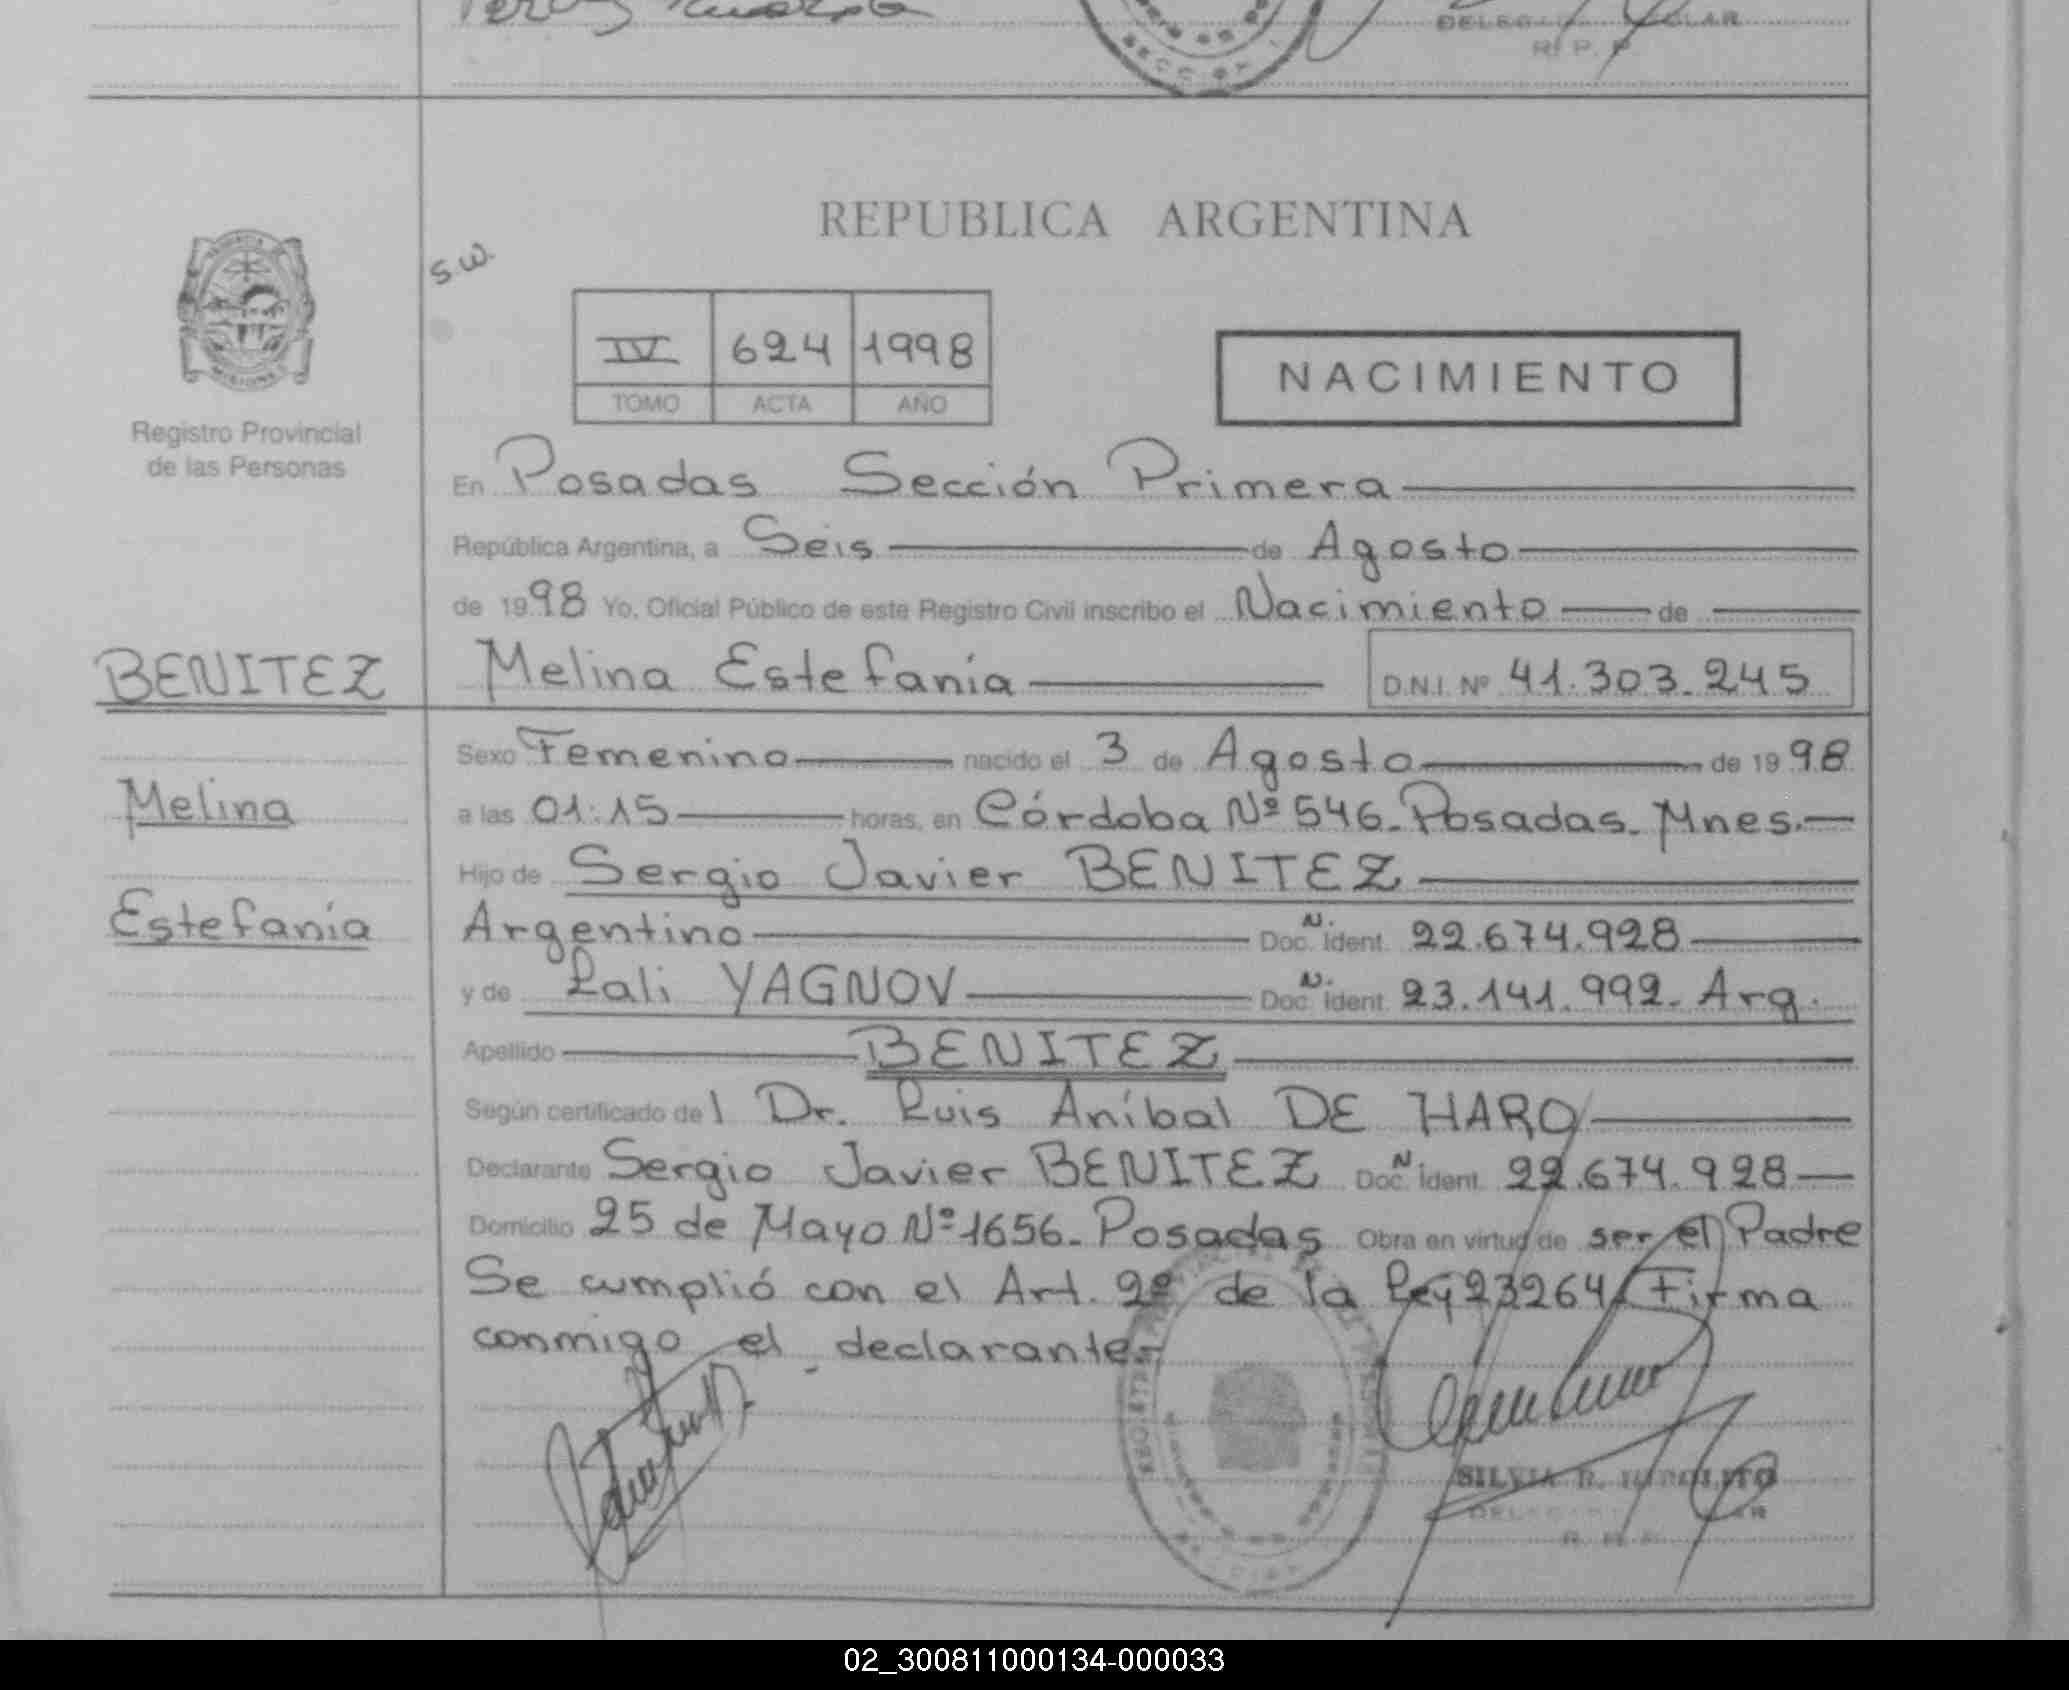 REPUBLICA ARGENTINA
S.W.
IV 624 1998
TOMO ACTA AÑO
NACIMIENTO
Registro Provincial
de las Personas
En Posadas Sección Primera
República Argentina, a Seis de Agosto
de 1998 Yo, Oficial Público de este Registro Civil inscribo el Nacimiento de
BENITEZ
Melina Estefanía D.N.I. Nº 41.303.245
Melina
Estefanía
Sexo Femenino nacido el 3 de Agosto de 1998
a las 01:15 horas, en Córdoba Nº 546. Posadas. Mnes.
Hijo de Sergio Javier BENITEZ
Argentino Doc. N. Ident. 22.674.928
y de Lali YAGNOV Doc. N. Ident. 23.141.992. Arg.
Apellido BENITEZ
Según certificado del Dr. Luis Aníbal DE HARO
Declarante Sergio Javier BENITEZ Doc. N. Ident. 22.674.928
Domicilio 25 de Mayo Nº 1656. Posadas Obra en virtud de ser el Padre
Se cumplió con el Art. 2º de la Ley 23264. Firma
conmigo el declarante.-
SILVIA R.
02_300811000134-000033